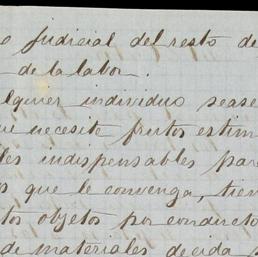 o judicial del resto de
de la labor.
alquier individuo sease
ue necesite frutos estim
les indispensables par
s que le convenga, tien
tos objetos por conducto
de materiales decida